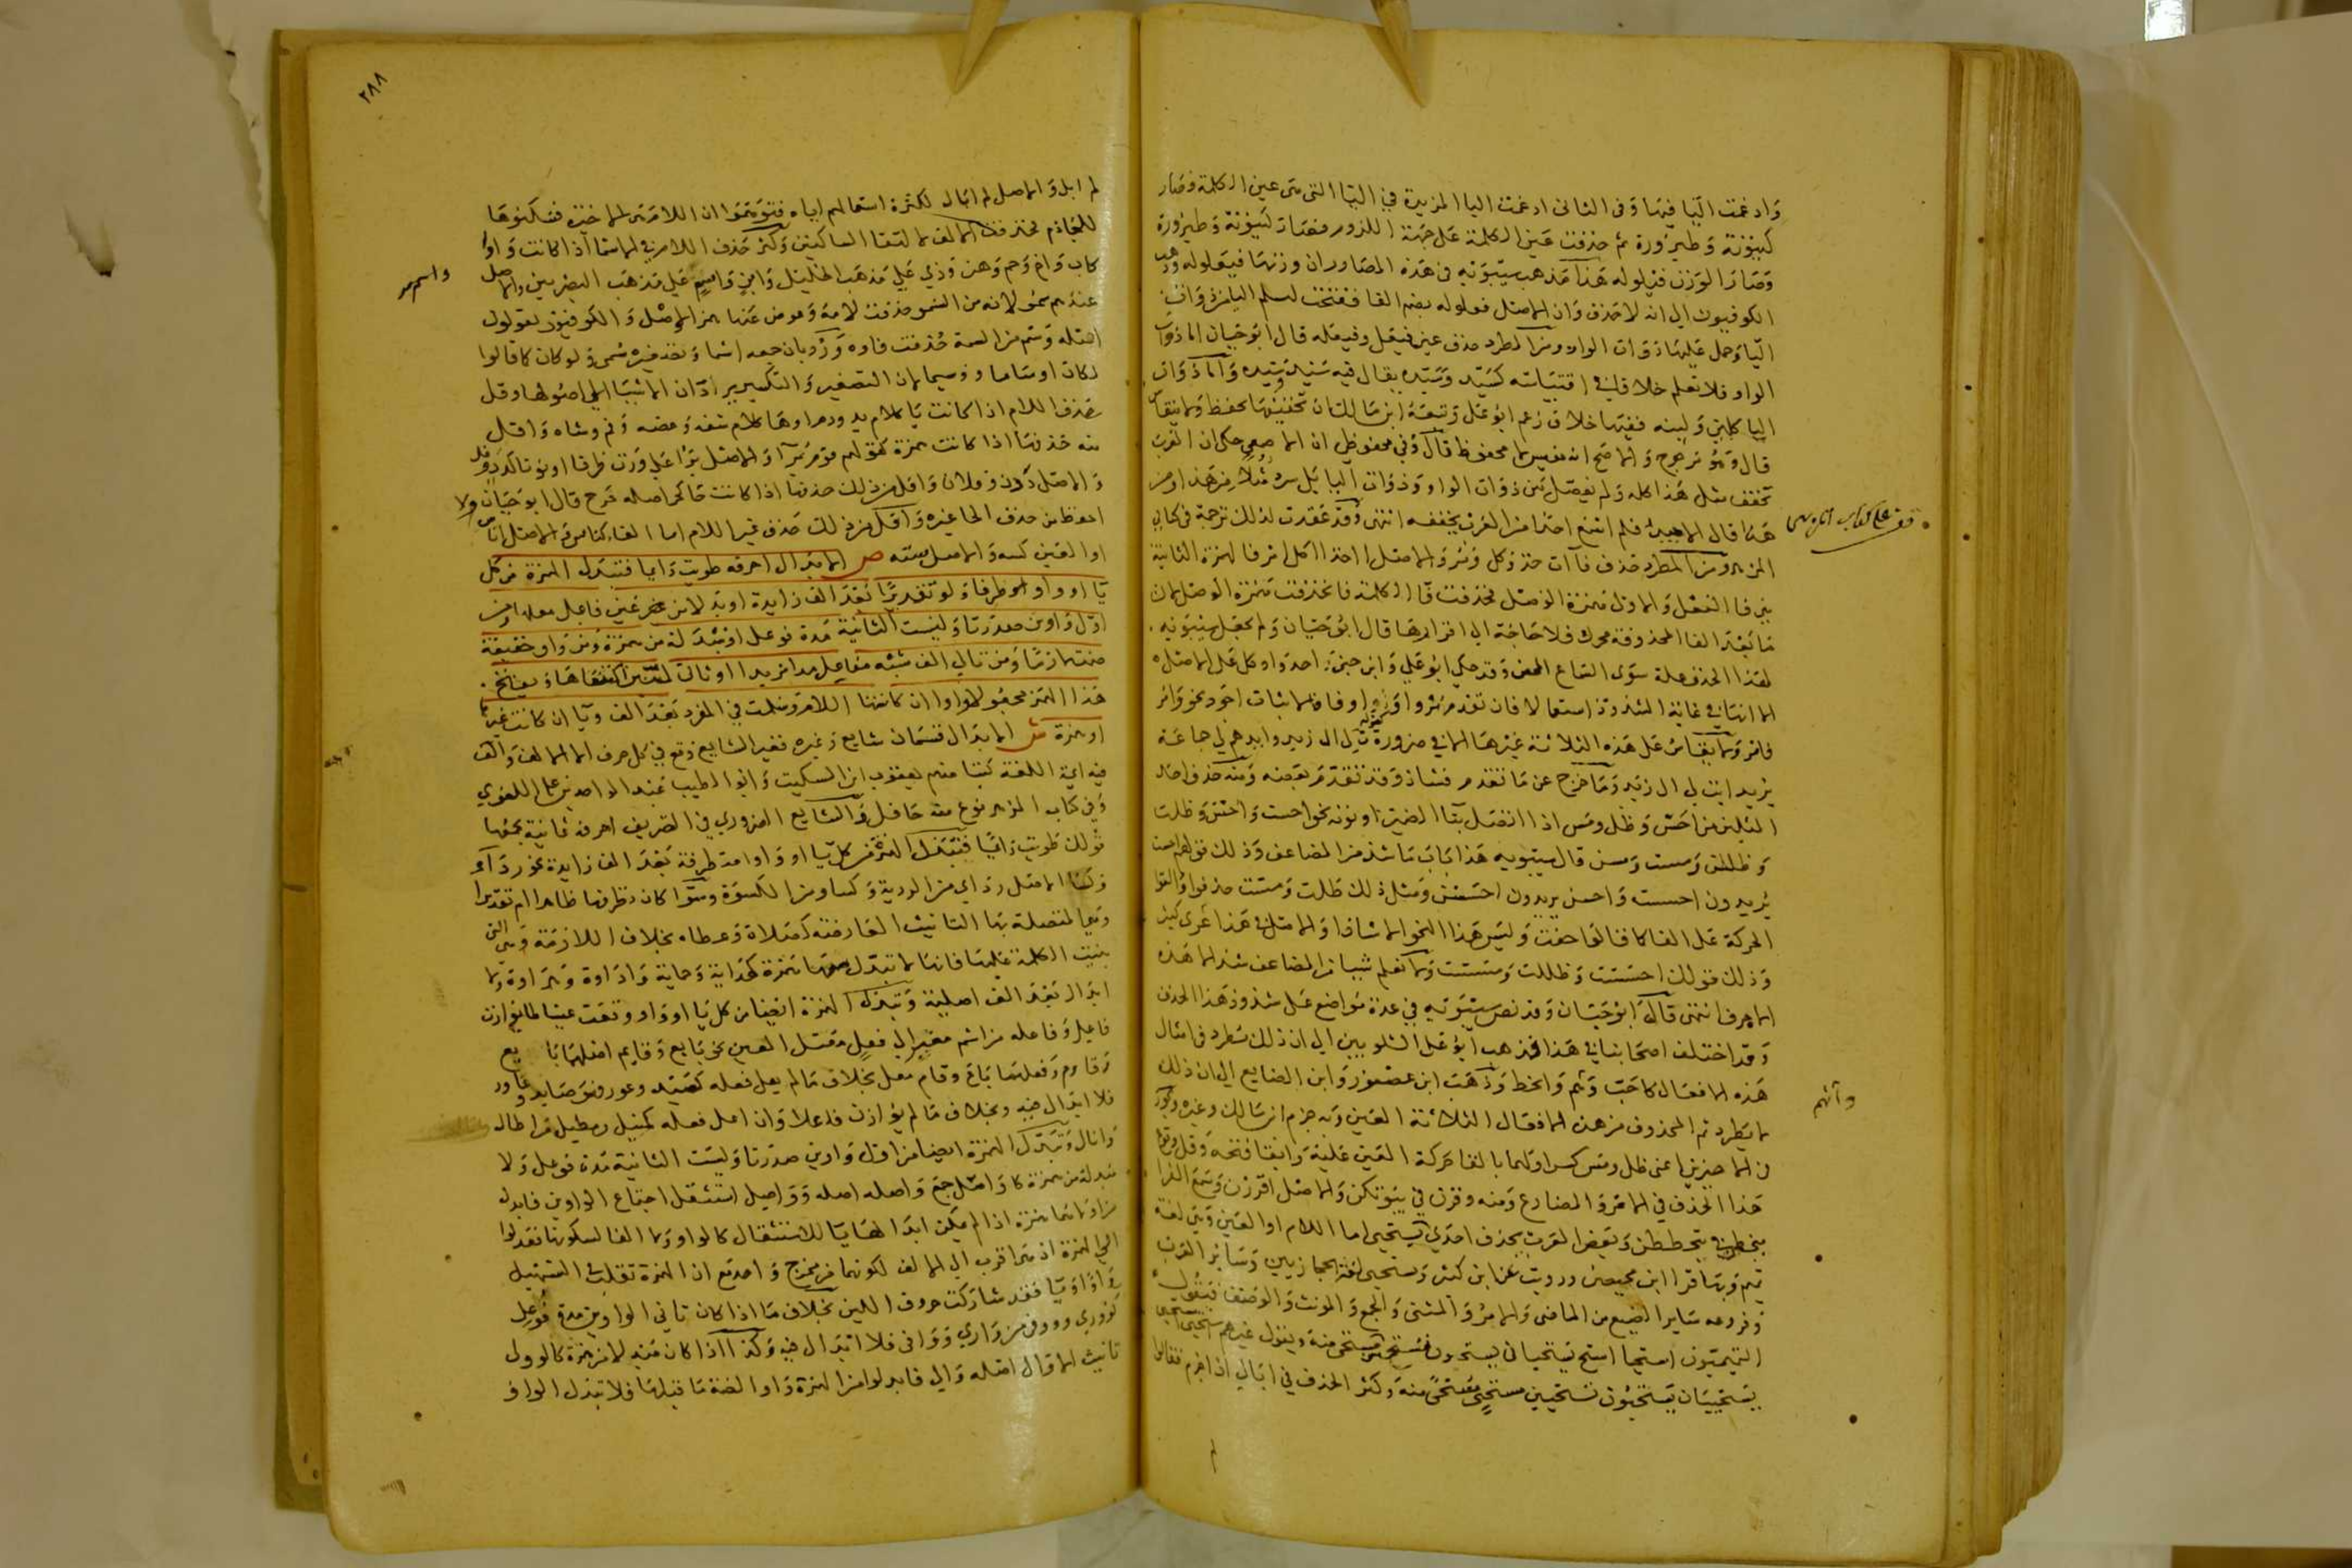 وادغمت اليا فيها وفى الثانى ادغمت اليا المزيدة في اليا التى هى عين الكلمة فصار
كينونة وطيرورة ثم حذفت عين الكلمة على جهة اللزوم فصارت كينونة وطيرورة
وصار الوزن فيلولة هذا مذهب سيبويه في هذه المصادر ان وزنها فيعلولة وذهب
الكوفيون الى انه لا حذف وان الاصل فعلولة بضم الفا ففتحت لتسلم اليا من ذوات
اليا وحمل عليها ذوات الواو ومن المطرد حذف عين فيعل وفيعلة قال ابو حيان اما ذوات
الواو فلا نعلم خلافا في اقتياسه كسيد وسيدة يقال فيه سيد وسيدة واما ذوات
اليا كلين ولينة ففيها خلاف زعم ابو على وتبعه ابن مالك ان تخفيفها يحفظ ولا يقاس
قال وهو مرجوح والاصح انه مقيس لا محفوظ قال وفي محفوظي ان الاصمعي حكى ان العرب
تخفف مثل هذا كله ولم يفصل بين ذوات الواو وذوات اليا بل سرد مثلا من هذا ومن
هذا قال
المزهر ومن المطرد حذف فاآت خذ وكل ومر والاصل اءخذ اءكل اءمر فالهمزة الثانية
هى فا الفعل والاولى همزة الوصل فحذفت فا الكلمة فانحذفت همزة الوصل لان
ما بعد الفا المحذوفة محرك فلا حاجة الى اقرارها قال ابو حيان ولم يجعل سيبويه
لهذا الحذف علة سوى السماع المحض وقد حكى ابو على وابن جنى اوخذ واوكل على الاصل
الا انها في غاية الشذوذ استعمالا فان تقدم مر واو او فا فالاثبات اجود نحو وأمر
فأمر ولا يقاس على هذه الثلاثة غيرها الا في ضرورة كقوله
يريد ايت لى ال زيد وما خرج عن ما تقدم فشاذ وقد تقدم بعضه ومنه حذف احد
المثلين من احس وظل ومس اذا اتصل بتا الضمير او نونه نحو احست واحسن وظلت
وظللن ومست ومسن قال سيبويه هذا باب ما شذ من المضاعف وذلك قولهم احست
يريدون احسست واحسن يريدون احسسن ومثل ذلك ظلت ومست حذفوا والقوا
الحركة على الفا كما قالوا خفت وليس هذا النحو الا شاذا والاصل في هذا عربى كثير
وذلك قولك احسست وظللت ومسست ولا نعلم شيئا من المضاعف شذ الا هذه
الاحرف انتهى قال ابو حيان وقد نص سيبويه في عدة مواضع على شذوذ هذا الحذف
وقد اختلف اصحابنا في هذا فذهب ابو على الشلوبين الى ان ذلك مطرد في امثال
هذه الافعال كاحب وهم وانحط وذهب ابن عصفور وابن الضايع الى ان ذلك
لا يطرد ثم المحذوف من هذه الافعال الثلاثة العين وبه جزم ابن مالك وغيره
في الاخيرين اعنى ظل ومس كسر اولهما بالقا حركة العين عليه وابقا فتحه وقل وقوع
هذا الحذف في الامر والمضارع ومنه وقرن في بيوتكن والاصل اقررن وسمع الفرا
ينحطن في ينحططن وبعض العرب يحذف احدى يستحيى اما اللام او العين وهى لغة
تميم وبها قرا ابن محيصن ورويت عن ابن كثير ويستحيى لغة الحجازيين وسائر العرب
وفروعه سائر الصيغ من الماضى والامر والمثنى والجمع والمونث والوصف فيقول
التميميون استحا استح يستحيان يستحون مستح مستحى منه ويقول غيرهم استحيى استحى
يستحييان يستحيون تستحيين مستحي مستحى منه وكثر الحذف في ابالي اذا جزم فقالوا
وآنهم
لم
٢٨٨
لم ابل والاصل لم ابال لكثرة استعمالهم اياه فتوهموا ان اللام هى الاخيرة فسكنوها
للجازم فحذفت الالف لالتقا الساكنين وكثر حذف اللام في الاسما اذا كانت واوا
كاب واخ وحم وهن وذي على مذهب الخليل وابن واسم على مذهب البصريين والاصل
عندهم سمو لانه من السمو حذفت لامه وعوض عنها همز الوصل والكوفيون يقولون
اصله وسم من السمة حذفت فاوه ورد بان جمعه اسما وتصغيره سمى ولو كان كما قالوا
لكان اوساما ووسيما لان التصغير والتكسير يردان الاشيا الى اصولها وقل
حذف اللام اذا كانت يا كلام يد ودم او ها كلام شفة وعضة وفم وشاة واقل
منه حذفها اذا كانت همزة كقولهم قوم برآ والاصل برآ على وزن ظرفا او نونا كدد وفل
والاصل ددن وفلان واقل من ذلك حذفها اذا كانت حا كحر اصله حرح قال ابو حيان ولا
احفظ من حذف الحا غيره واقل من ذلك حذف غير اللام اما الفا كناس والاصل اناس
او العين كسه والاصل سته ص الابدال احرفه طويت دايما فتبدل الهمزة من كل
يا او واو طرفا ولو تقديرا بعد الف زايدة او بدلا من عين فاعل معله ومن
اول واوين صدرتا وليست الثانية مدة فوعل او مبدلة من همزة ومن واو خفيفة
ضمت لازما ومن تالي الف شبه مفاعل مدا مزيدا او ثاني لينين اكتنفاها ويفتح
هذا الهمز مجعولا واوا ان كانتها اللام وسلمت في المفرد بعد الف ويا ان كانت غيرها
او همزة ش الابدال قسمان شايع وغيره فغير الشايع وقع في كل حرف الا الالف والف
فيه ايمة اللغة كتبا منهم يعقوب ابن السكيت وابو الطيب عبد الواحد بن على اللغوي
وفي كتاب المزهر نوع منه حافل والشايع الضروري في التصريف احرفه ثمانية يجمعها
قولك طويت دايما فتبدل الهمزة من كل يا او واو متطرفة بعد الف زايدة نحو ردآء
وكسا الاصل رداي من الردية وكساو من الكسوة وسوا كان تطرفها ظاهرا ام تقديرا
وهى المتصلة بها التانيث العارضة كصلاة وعطاه بخلاف اللازمة وهى التى
بنيت الكلمة عليها فانها لا تبدل معها همزة كهداية وحماية واداوة وهراوة ولا
ابدال بعد الف اصلية وتبدل الهمزة ايضا من كل يا او واو وقعت عينا لما يوازن
فاعل وفاعلة من اسم معتزى الى فعل معتل العين نحو بايع وقايم اصلهما بايع
وقاوم وفعلهما باع وقام معل بخلاف ما لم يعل فعله كصيد وعور فهو صايد وعاور
فلا ابدال فيه وبخلاف ما لم يوازن فاعلا وان اعل فعله كمنيل ومطيل من اطال
وانال وتبدل الهمزة ايضا من اول واوين صدرتا وليست الثانية مدة فوعل ولا
مبدلة من همزة كاواصل جمع واصلة اصله وواصل استثقل اجتماع الواوين فابدل
من اولاهما همزة اذ لم يمكن ابدالها يا للاستثقال كالواو ولا الفا لسكونها فعدلوا
الى الهمزة اذ هى اقرب الى الالف لكونهما من مخرج واحد مع ان الهمزة تقلب في التسهيل
واوا ويا فقد شاركت حروف اللين بخلاف ما اذا كان ثاني الواوين مدة فوعل
كووري وووفي من واري ووافى فلا ابدال فيه وكذا اذا كان مبدلا من همزة كالوولى
تانيث الاوال افعله وال فابدلوا من الهمزة واوا لضمة ما قبلها فلا تبدل الواو